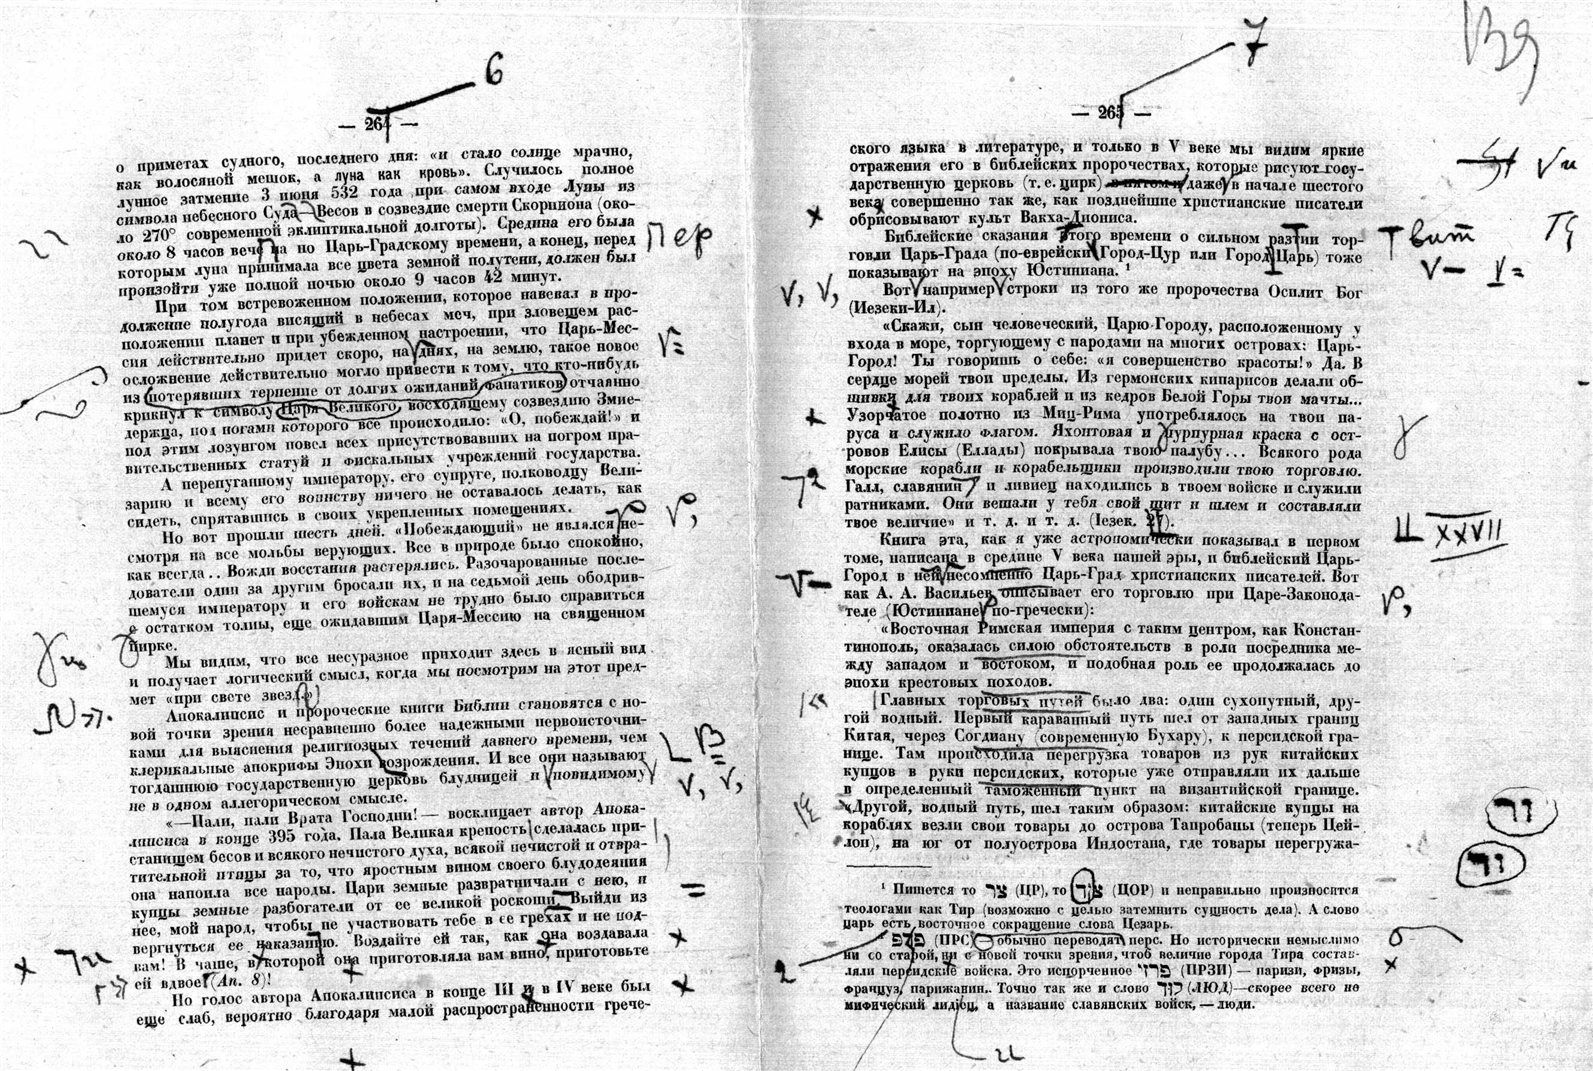 6
— 264 —
о приметах судного, последнего дня: «и стало солнце мрачно,
как волосяной мешок, а луна как кровь». Случилось полное
лунное затмение 3 июня 532 года при самом входе Луны из
символа небесного Суда—Весов в созвездие смерти Скорпиона (око-
ло 270° современной эклиптикальной долготы). Средина его была
около 8 часов вечера по Царь-Градскому времени, а конец, перед
которым луна принимала все цвета земной полутени, должен был
произойти уже полной ночью около 9 часов 42 минут.
При том встревоженном положении, которое навевал в про-
должение полугода висящий в небесах меч, при зловещем рас-
положении планет и при убежденном настроении, что Царь-Мес-
сия действительно придет скоро, на днях, на землю, такое новое
осложнение действительно могло привести к тому, что кто-нибудь
из потерявших терпение от долгих ожиданий фанатиков отчаянно
крикнул к символу Царя Великого, восходящему созвездию Змие-
держца, под ногами которого все происходило: «О, побеждай!» и
под этим лозунгом повел всех присутствовавших на погром пра-
вительственных статуй и фискальных учреждений государства.
А перепуганному императору, его супруге, полководцу Вели-
зарию и всему его воинству ничего не оставалось делать, как
сидеть, спрятавшись в своих укрепленных помещениях.
Но вот прошли шесть дней. «Побеждающий» не являлся не-
смотря на все мольбы верующих. Все в природе было спокойно,
как всегда.. Вожди восстания растерялись. Разочарованные после-
дователи один за другим бросали их, и на седьмой день ободрив-
шемуся императору и его войскам не трудно было справиться
с остатком толпы, еще ожидавшим Царя-Мессию на священном
цирке.
Мы видим, что все несуразное приходит здесь в ясный вид
и получает логический смысл, когда мы посмотрим на этот пред-
мет «при свете звезд»
Апокалипсис и пророческие книги Библии становятся с но-
вой точки зрения несравненно более надежными первоисточни-
ками для выяснения религиозных течений давнего времени, чем
клерикальные апокрифы Эпохи возрождения. И все они называют
тогдашнюю государственную церковь блудницей и повидимому
не в одном аллегорическом смысле.
«—Пали, пали Врата Господни! — восклицает автор Апока-
липсиса в конце 395 года. Пала Великая крепость сделалась при-
станищем бесов и всякого нечистого духа, всякой нечистой и отвра-
тительной птицы за то, что яростным вином своего блудодеяния
она напоила все народы. Цари земные развратничали с нею, и
купцы земные разбогатели от ее великой роскоши. Выйди из
нее, мой народ, чтобы не участвовать тебе в ее грехах и не под-
вергнуться ее наказанию. Воздайте ей так, как она воздавала
вам! В чаше, в которой она приготовляла вам вино, приготовьте
ей вдвое (Ап. 8)!
Но голос автора Апокалипсиса в конце III и в IV веке был
еще слаб, вероятно благодаря малой распространенности грече-
7
— 265 —
ского языка в литературе, и только в V веке мы видим яркие
отражения его в библейских пророчествах, которые рисуют госу-
дарственную церковь (т. е. цирк) даже в начале шестого
века совершенно так же, как позднейшие христианские писатели
обрисовывают культ Вакха-Диониса.
Библейские сказания этого времени о сильном разтии тор-
говли Царь-Града (по-еврейски Город-Цур или Город Царь) тоже
показывают на эпоху Юстиниана. ¹
Вот например строки из того же пророчества Осилит Бог
(Иезеки-Ил).
«Скажи, сын человеческий, Царю-Городу, расположенному у
входа в море, торгующему с народами на многих островах: Царь-
Город! Ты говоришь о себе: «я совершенство красоты!» Да. В
сердце морей твои пределы. Из гермонских кипарисов делали об-
шивки для твоих кораблей и из кедров Белой Горы твои мачты...
Узорчатое полотно из Миц-Рима употреблялось на твои па-
руса и служило флагом. Яхонтовая и пурпурная краска с ост-
ровов Елисы (Еллады) покрывала твою палубу... Всякого рода
морские корабли и корабельщики производили твою торговлю.
Галл, славянин и ливиец находились в твоем войске и служили
ратниками. Они вешали у тебя свой щит и шлем и составляли
твое величие» и т. д. и т. д. (Iезек. 27).
Книга эта, как я уже астрономически показывал в первом
томе, написана в средине V века нашей эры, и библейский Царь-
Город в ней несомненно Царь-Град христианских писателей. Вот
как А. А. Васильев описывает его торговлю при Царе-Законода-
теле (Юстиниане по-гречески):
«Восточная Римская империя с таким центром, как Констан-
тинополь, оказалась силою обстоятельств в роли посредника ме-
жду западом и востоком, и подобная роль ее продолжалась до
эпохи крестовых походов.
Главных торговых путей было два: один сухопутный, дру-
гой водный. Первый караванный путь шел от западных границ
Китая, через Согдиану (современную Бухару), к персидской гра-
нице. Там происходила перегрузка товаров из рук китайских
купцов в руки персидских, которые уже отправляли их дальше
в определенный таможенный пункт на византийской границе.
«Другой, водный путь, шел таким образом: китайские купцы на
кораблях везли свои товары до острова Тапробаны (теперь Цей-
лон), на юг от полуострова Индостана, где товары перегружа-
¹ Пишется то צר (ЦР), то צור (ЦОР) и неправильно произносятся
теологами как Тир (возможно с целью затемнить сущность дела). А слово
царь есть восточное сокращение слова Цезарь.
² (ПРС) обычно переводят перс. Но исторически немыслимо
ни со старой, ни с новой точки зрения, чтоб величие города Тира состав-
ляли персидские войска. Это испорченное פרזי (ПРЗИ) — паризи, фризы,
французы, парижанин.. Точно так же и слово לוד (ЛЮД)—скорее всего не
мифический лидиец, а название славянских войск, — люди.
Пер
вит
XXVII